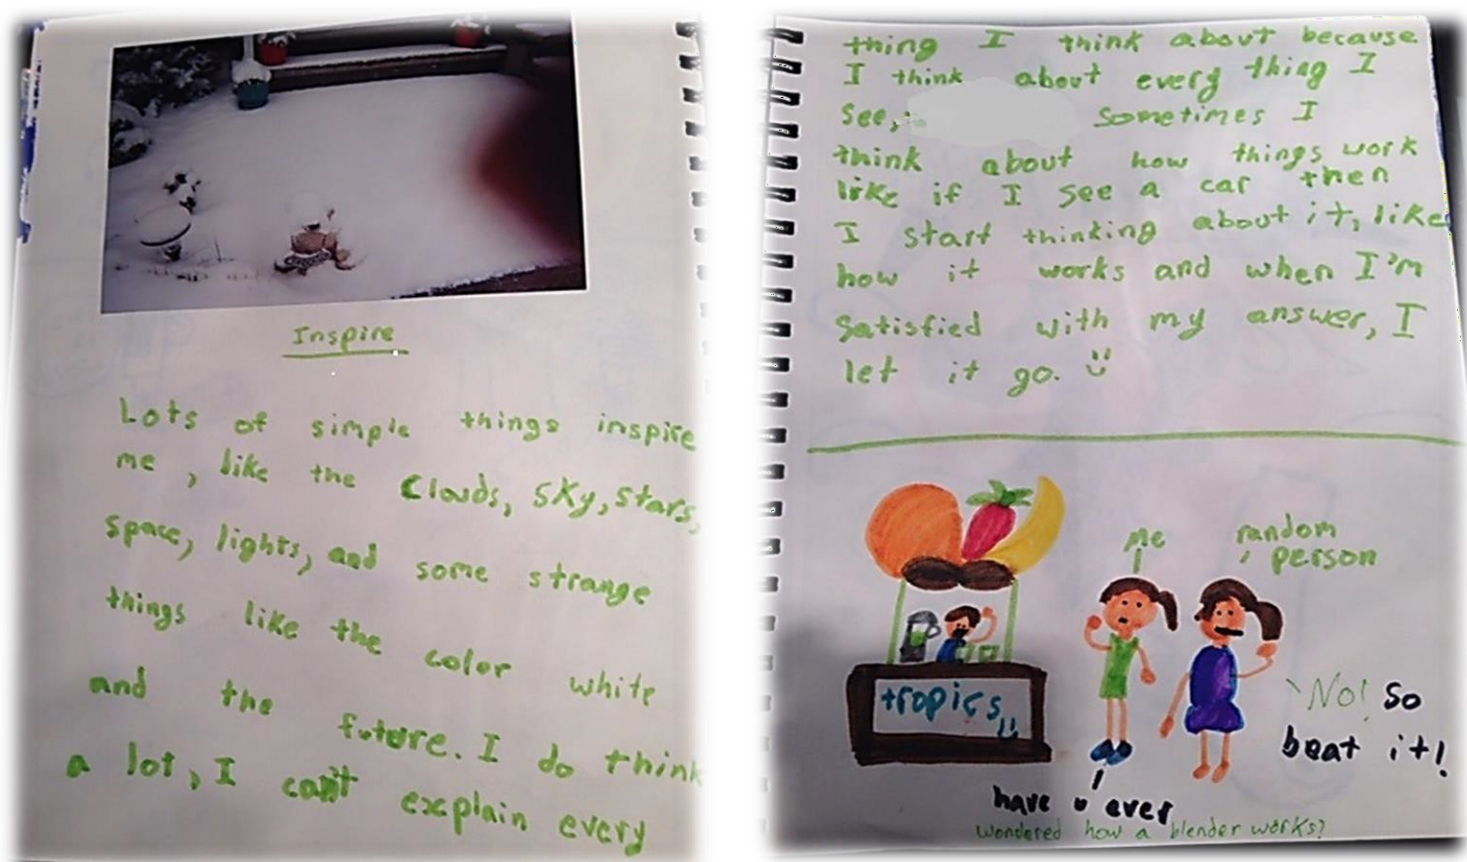 Inspire
Lots of simple things inspire
me, like the Clouds, sky, stars,
space, lights, and some strange
things like the color white
and the future. I do think
a lot, I can't explain every
thing I think about because
I think about every thing I
see, sometimes I
think about how things work
like if I see a car then
I start thinking about it, like
how it works and when I'm
satisfied with my answer, I
let it go.
me
random
person
tropics
No! So
beat it!
have u ever
wondered how a blender works?